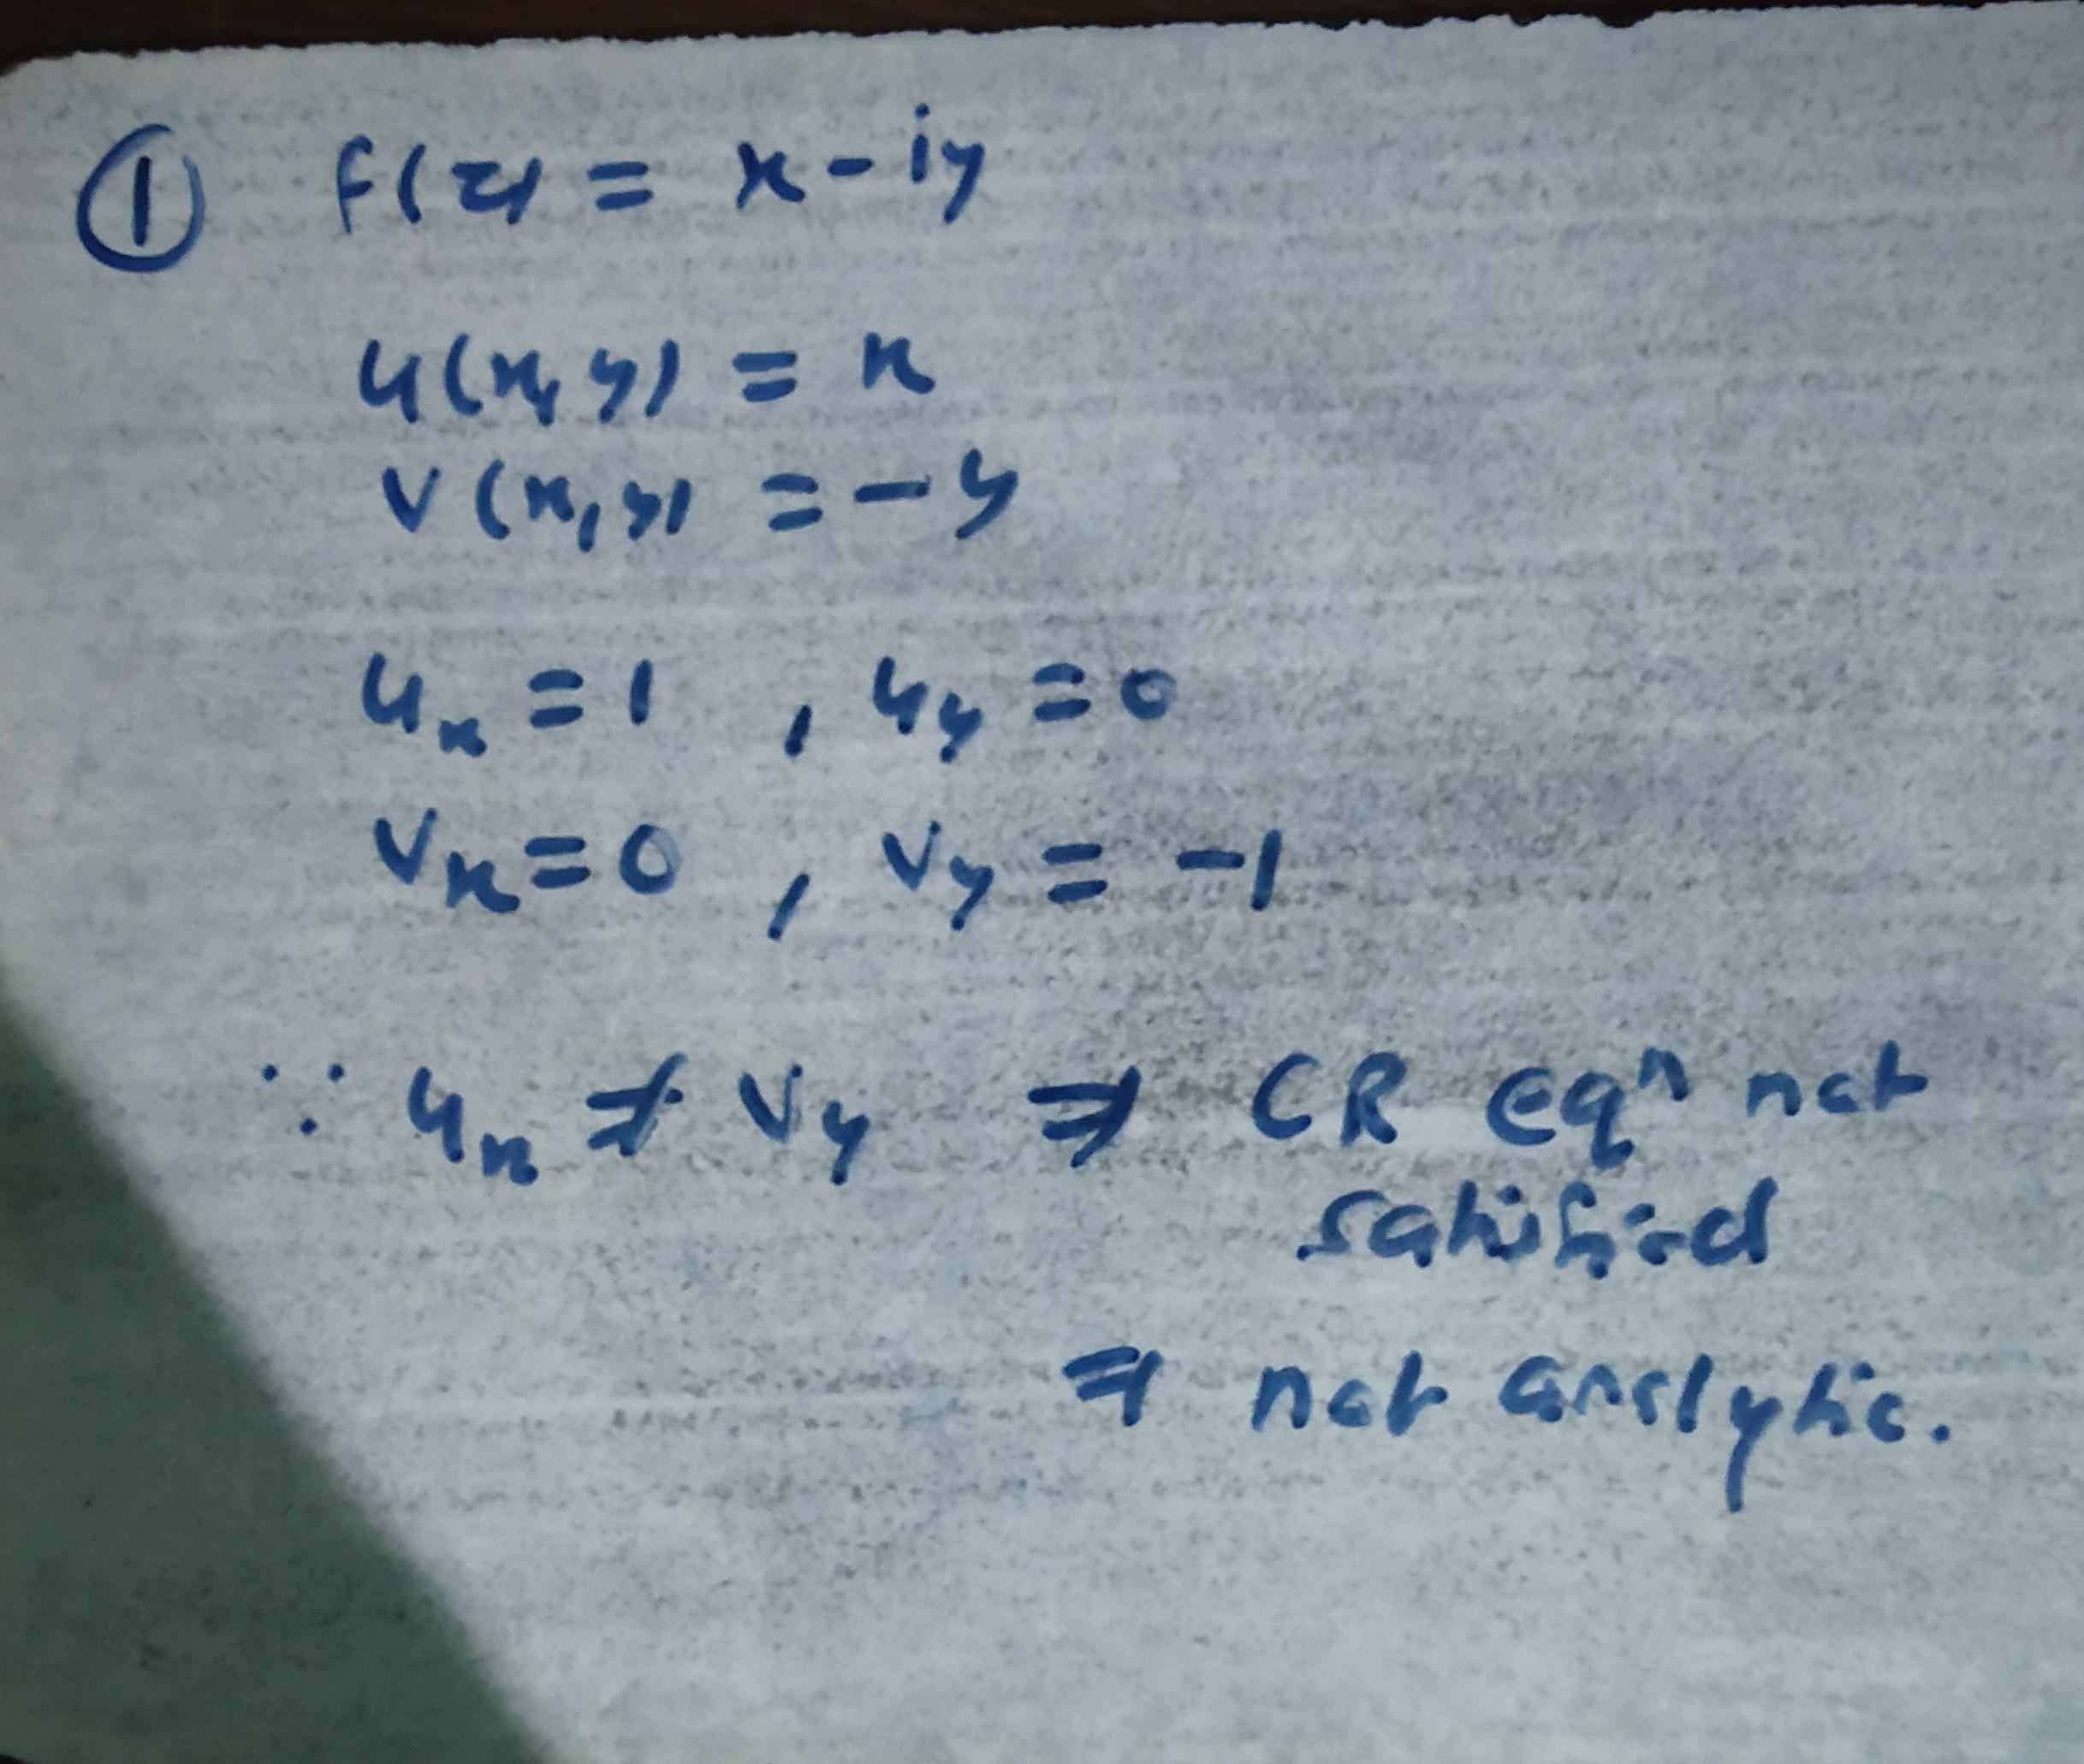 ① f(z) = x - iy
u(x, y) = x
v(x, y) = - y
uₓ = 1 , u_y = 0
vₓ = 0 , v_y = -1
∵ uₓ ≠ v_y ⇒ CR eqⁿ not
satisfied
⇒ not analytic.